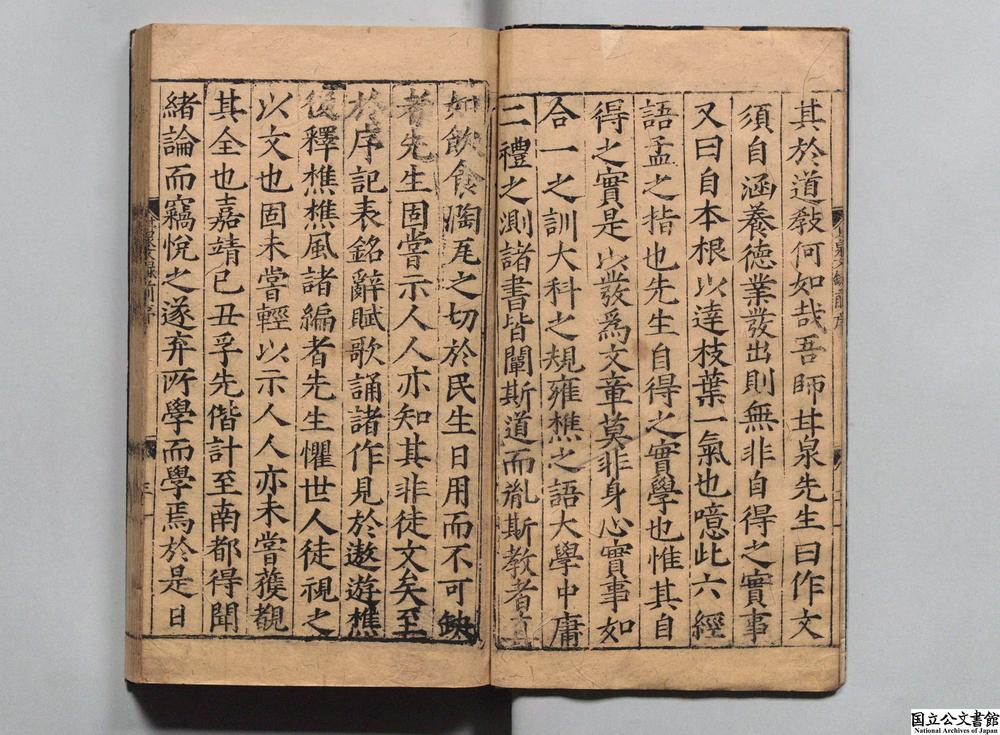 其於道教何如哉吾師甘泉先生曰作文
須自涵養德業發出則無非自得之實事
又曰自本根以達枝葉一氣也噫此六經
語孟之指也先生自得之實學也惟其自
得之實是以發為文章莫非身心實事如
合一之訓大科之規雍樵之語大學中庸
二禮之測諸書皆闡斯道而胤斯教者
如飲食陶瓦之切於民生日用而不可缺
者先生固嘗示人人亦知其非徒文矣至
於序記表銘辭賦歌誦諸作見於遨遊樵
後釋樵樵風諸編者先生懼世人徒視之
以文也固未嘗輕以示人人亦未嘗獲觀
其全也嘉靖已丑孚先偕計至南都得聞
緒論而竊悅之遂弃所學而學焉於是日
国立公文書館
National Archives of Japan